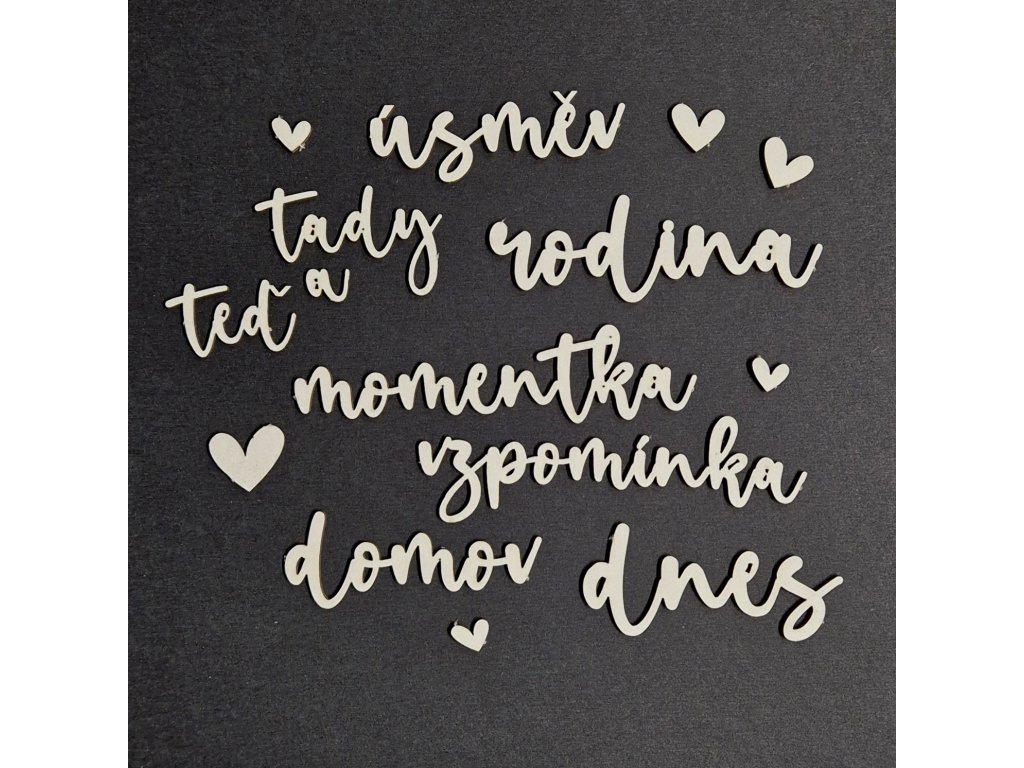 úsměv
tady
a
teď
rodina
momentka
vzpomínka
domov
dnes